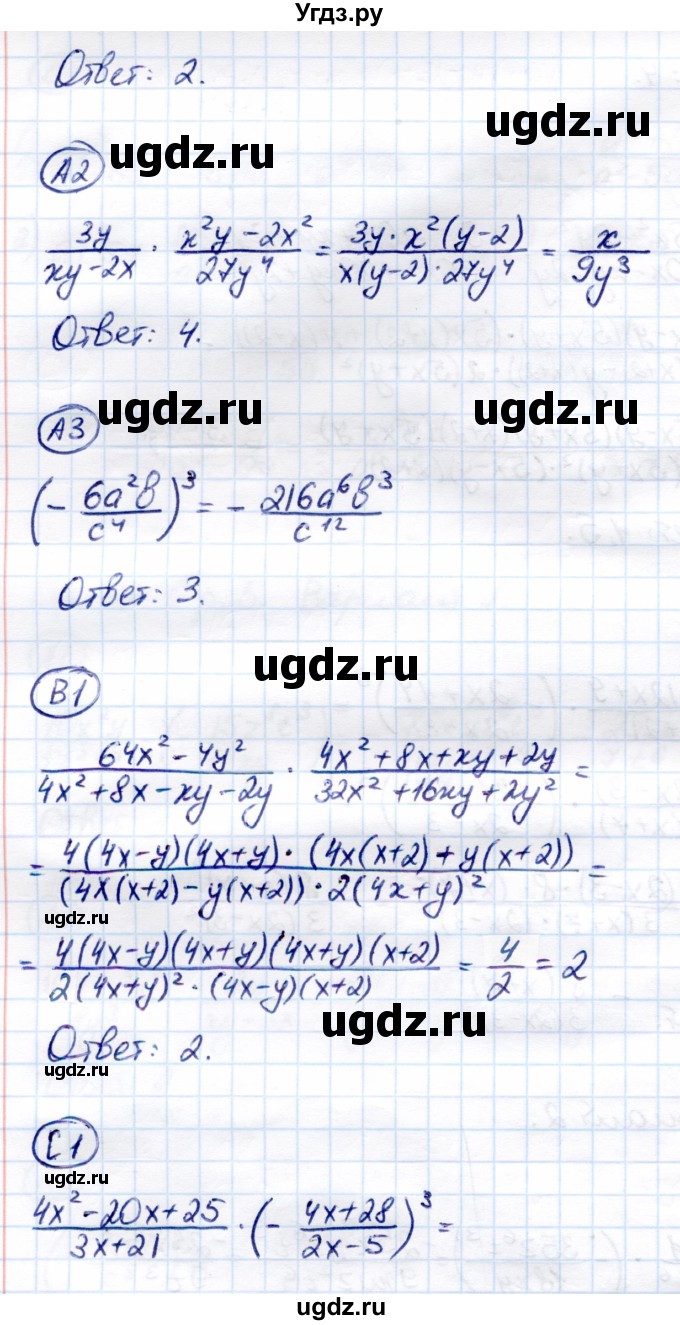 Угдз.ру
Ответ: 2.
ugdz.ru
ugdz.ru
А2
3y/(xy-2x) · (x²y-2x²)/(27y⁴) = (3y·x²(y-2))/(x(y-2)·27y⁴) = x/(9y³)
Ответ: 4.
ugdz.ru
ugdz.ru
А3
(- 6a²b/c⁴)³ = - 216a⁶b³/c¹²
Ответ: 3.
ugdz.ru
В1
(64x²-4y²)/(4x²+8x-xy-2y) · (4x²+8x+xy+2y)/(32x²+16xy+2y²) =
= (4(4x-y)(4x+y)·(4x(x+2)+y(x+2)))/((4x(x+2)-y(x+2))·2(4x+y)²) =
ugdz.ru
= (4(4x-y)(4x+y)(4x+y)(x+2))/(2(4x+y)²·(4x-y)(x+2)) = 4/2 = 2
ugdz.ru
Ответ: 2.
ugdz.ru
С1
ugdz.ru
(4x²-20x+25)/(3x+21) · (- (4x+28)/(2x-5))³ =
ugdz.ru